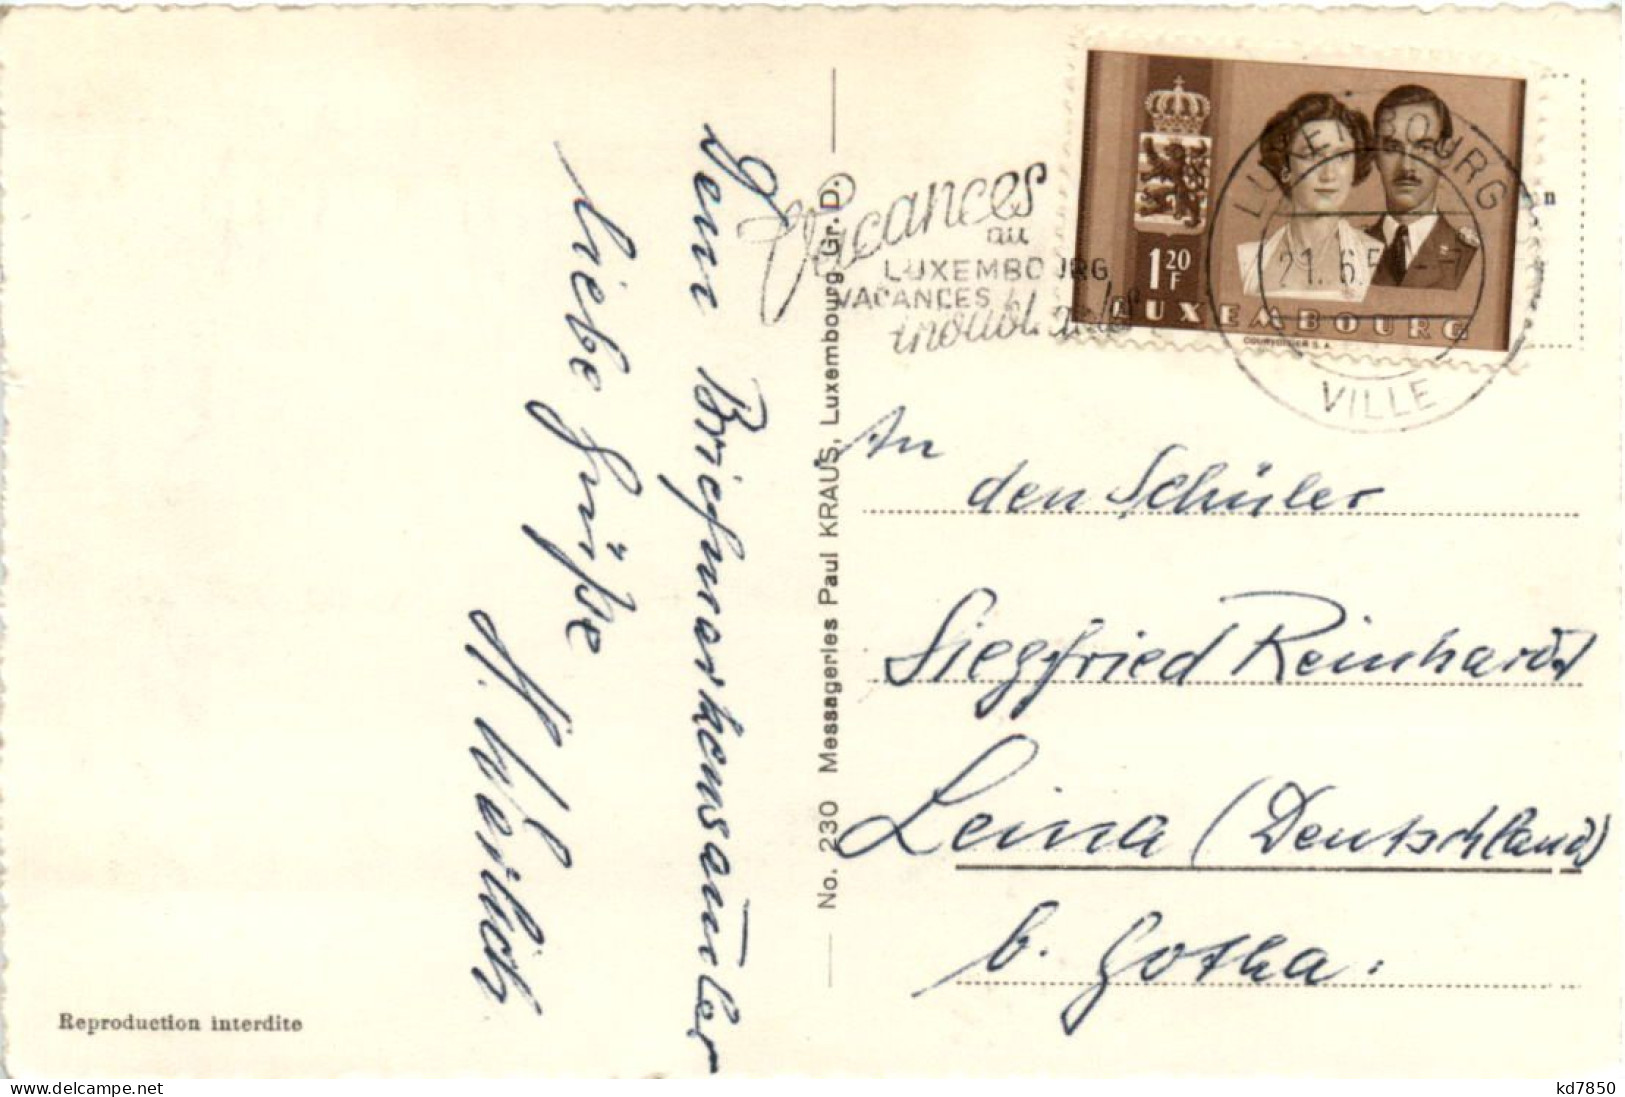 Dem Briefmarkensammler
liebe Grüße
H. Weirich
Reproduction interdite
No. 230 Messageries Paul KRAUS, Luxembourg-Gr. D.
Vacances
au
LUXEMBOURG
VACANCES
inoubliables
1 20 F
LUXEMBOURG
COURVOISIER S.A.
LUXEMBOURG
21.6.5
VILLE
n
An
den Schüler
Siegfried Reinhardt
Leina (Deutschland)
b. Gotha.
delcampe.net
kd7850